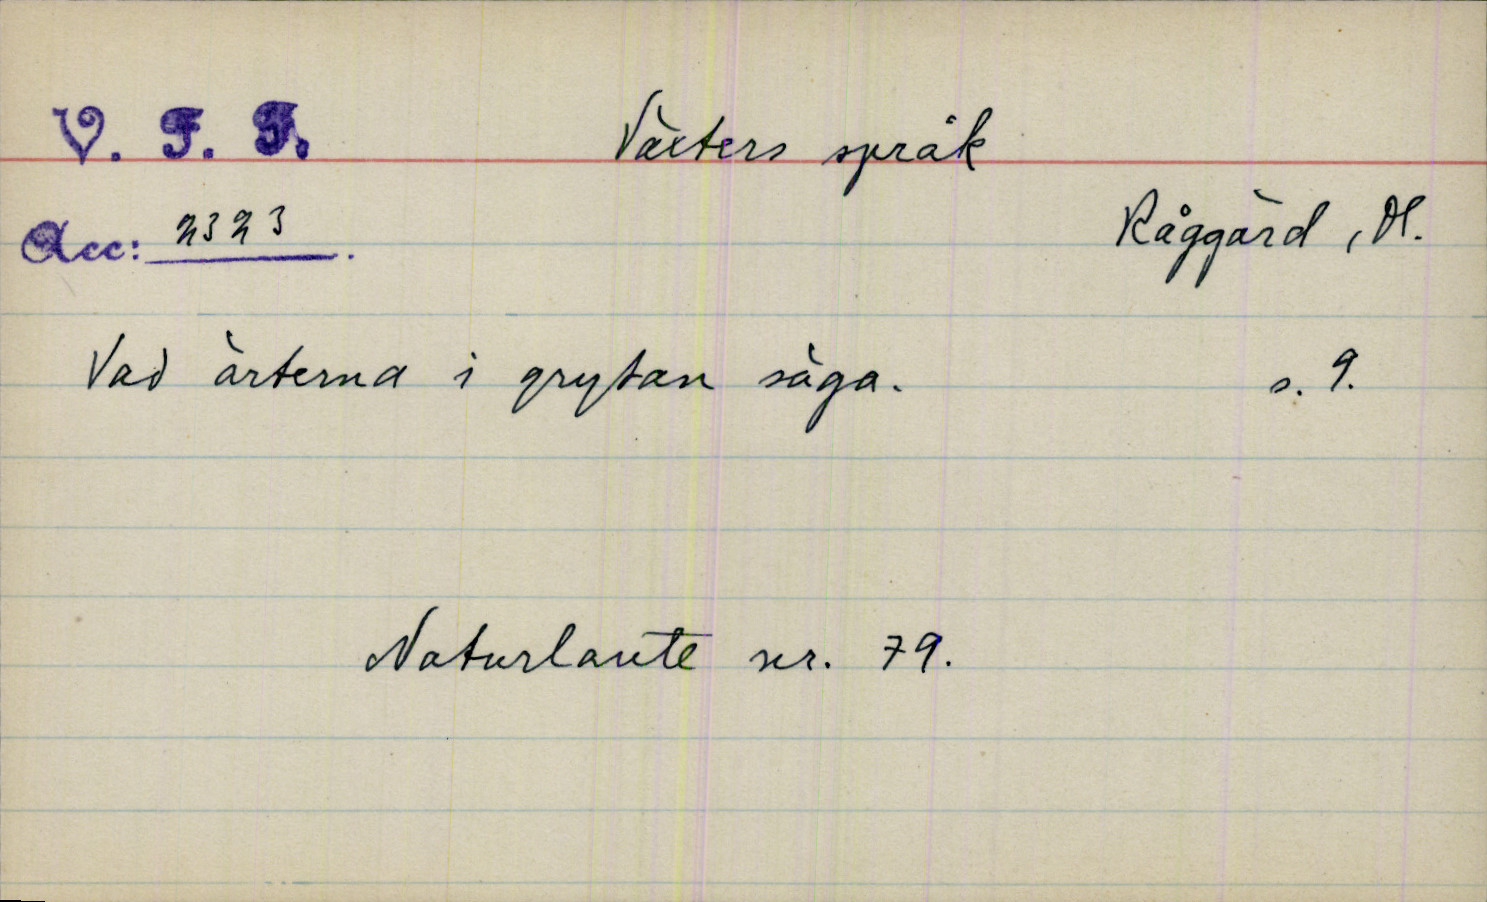 V. F. F.
Växters språk
Acc: 2323.
Råggärd, Dl.
Vad ärterna i grytan säga. s. 9.
Naturlaute nr. 79.